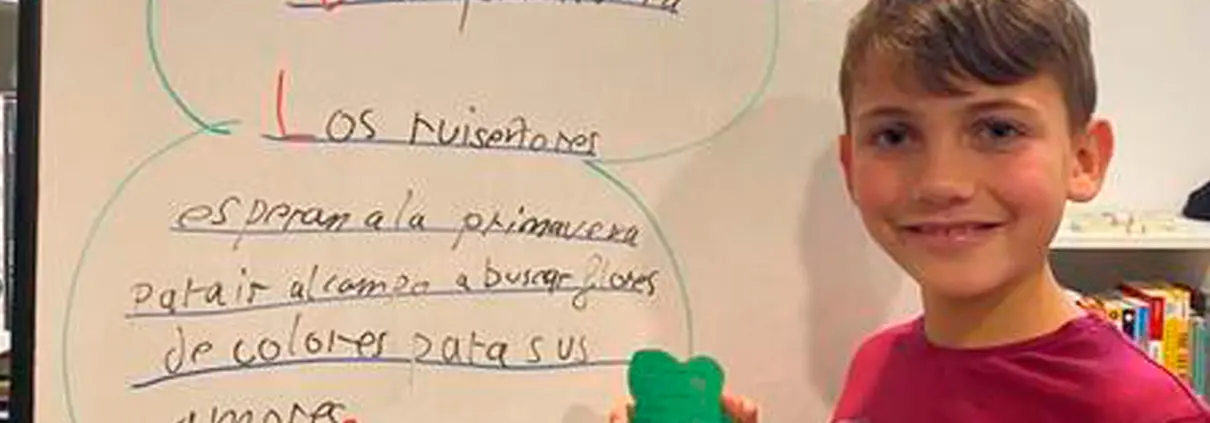 Los ruiseñores
esperan a la primavera
para ir al campo a buscar flores
de colores para sus
amores.